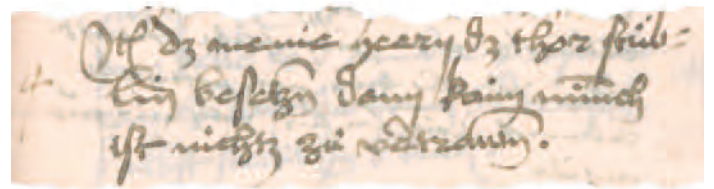 Itē dz meine heerñ dz thor stüb=
lin besetzñ dann kain münch
ist nichtz zü vertrawñ.